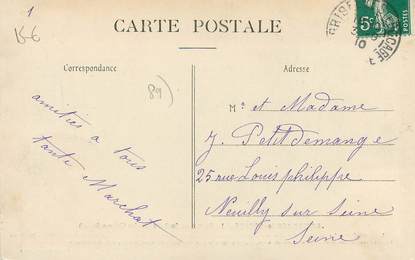 1
15€
CARTE POSTALE
5c
POSTES
Correspondance
Adresse
89)
amitiés à tous
tante Marchat
Mr et Madame
J. Petitdemange
25 rue Louis philippe
Neuilly sur Seine
Seine